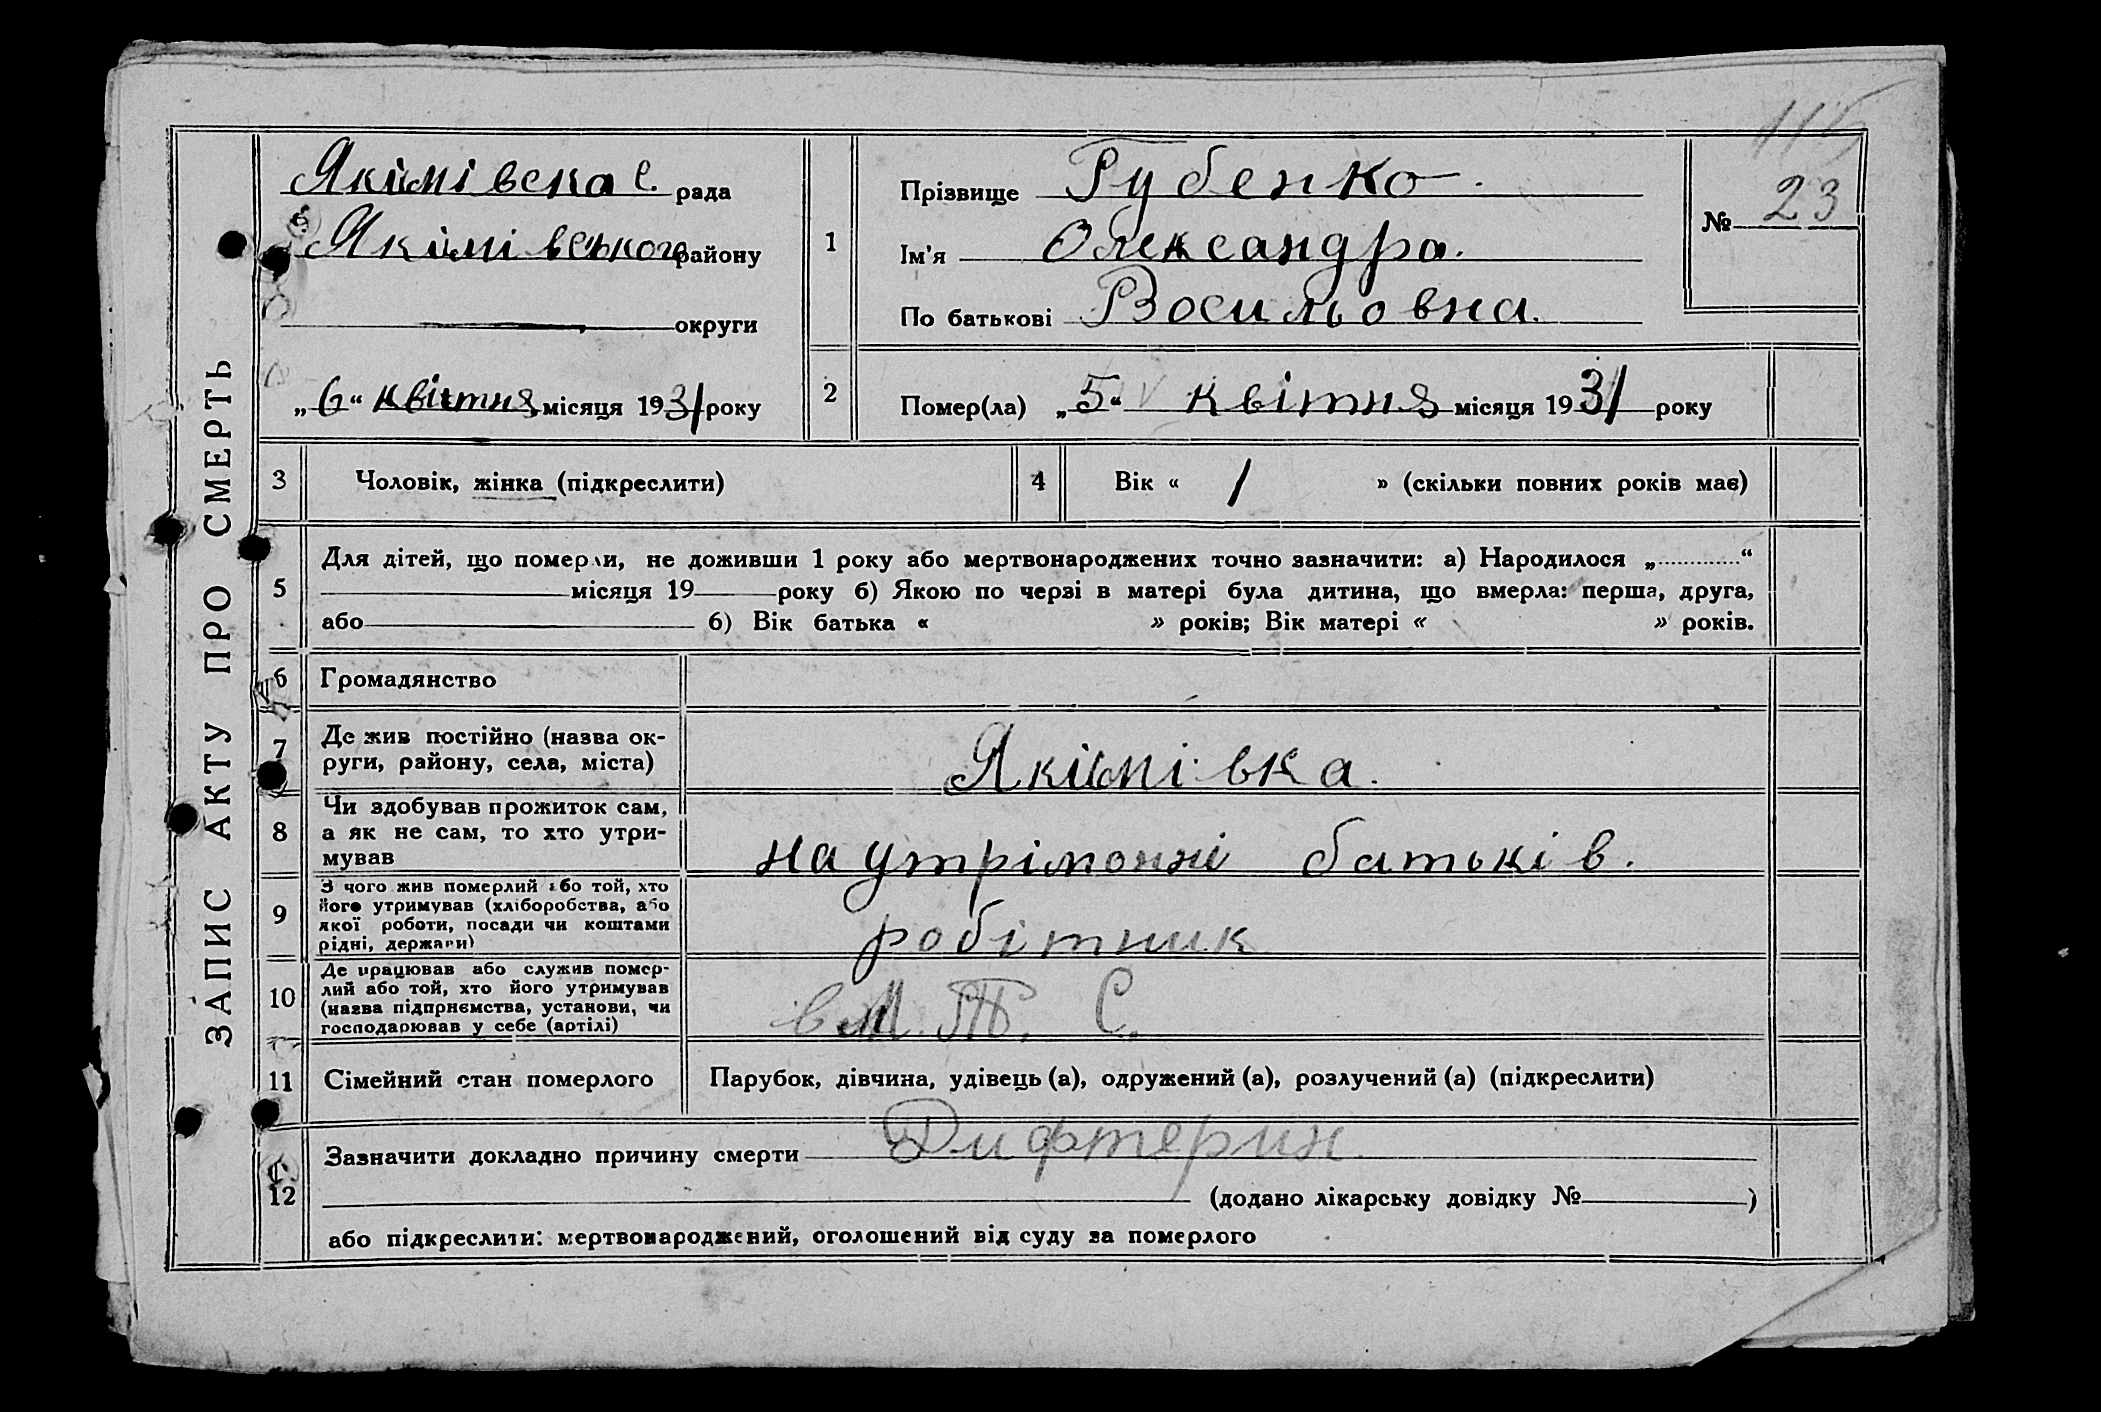 115
ЗАПИС АКТУ ПРО СМЕРТЬ
Якімівска С. рада
Якімівського району
округи
„6“ квітня місяця 1931 року
1
Прізвище Губенко.
Ім'я Олександра.
По батькові Васильовна.
№ 23
2
Помер(ла) „5“ квітня місяця 1931 року
3 Чоловік, жінка (підкреслити)
4 Вік « 1 » (скільки повних років має)
5
Для дітей, що померли, не доживши 1 року або мертвонароджених точно зазначити: а) Народилося „............“
місяця 19 року б) Якою по черзі в матері була дитина, що вмерла: перша, друга,
або б) Вік батька « » років; Вік матері « » років.
6 Громадянство
7
Де жив постійно (назва ок-
руги, району, села, міста)
Якімівка.
8
Чи здобував прожиток сам,
а як не сам, то хто утри-
мував
на утріманні батьків.
9
З чого жив померлий або той, хто
його утримував (хліборобства, або
якої роботи, посади чи коштами
рідні, держави)
робітник
10
Де працював або служив помер-
лий або той, хто його утримував
(назва підприємства, установи, чи
господарював у себе (артілі)
в М. Т. С.
11 Сімейний стан померлого
Парубок, дівчина, удівець (а), одружений (а), розлучений (а) (підкреслити)
12
Зазначити докладно причину смерти Дифтерин.
(додано лікарську довідку № )
або підкреслити: мертвонароджений, оголошений від суду за померлого